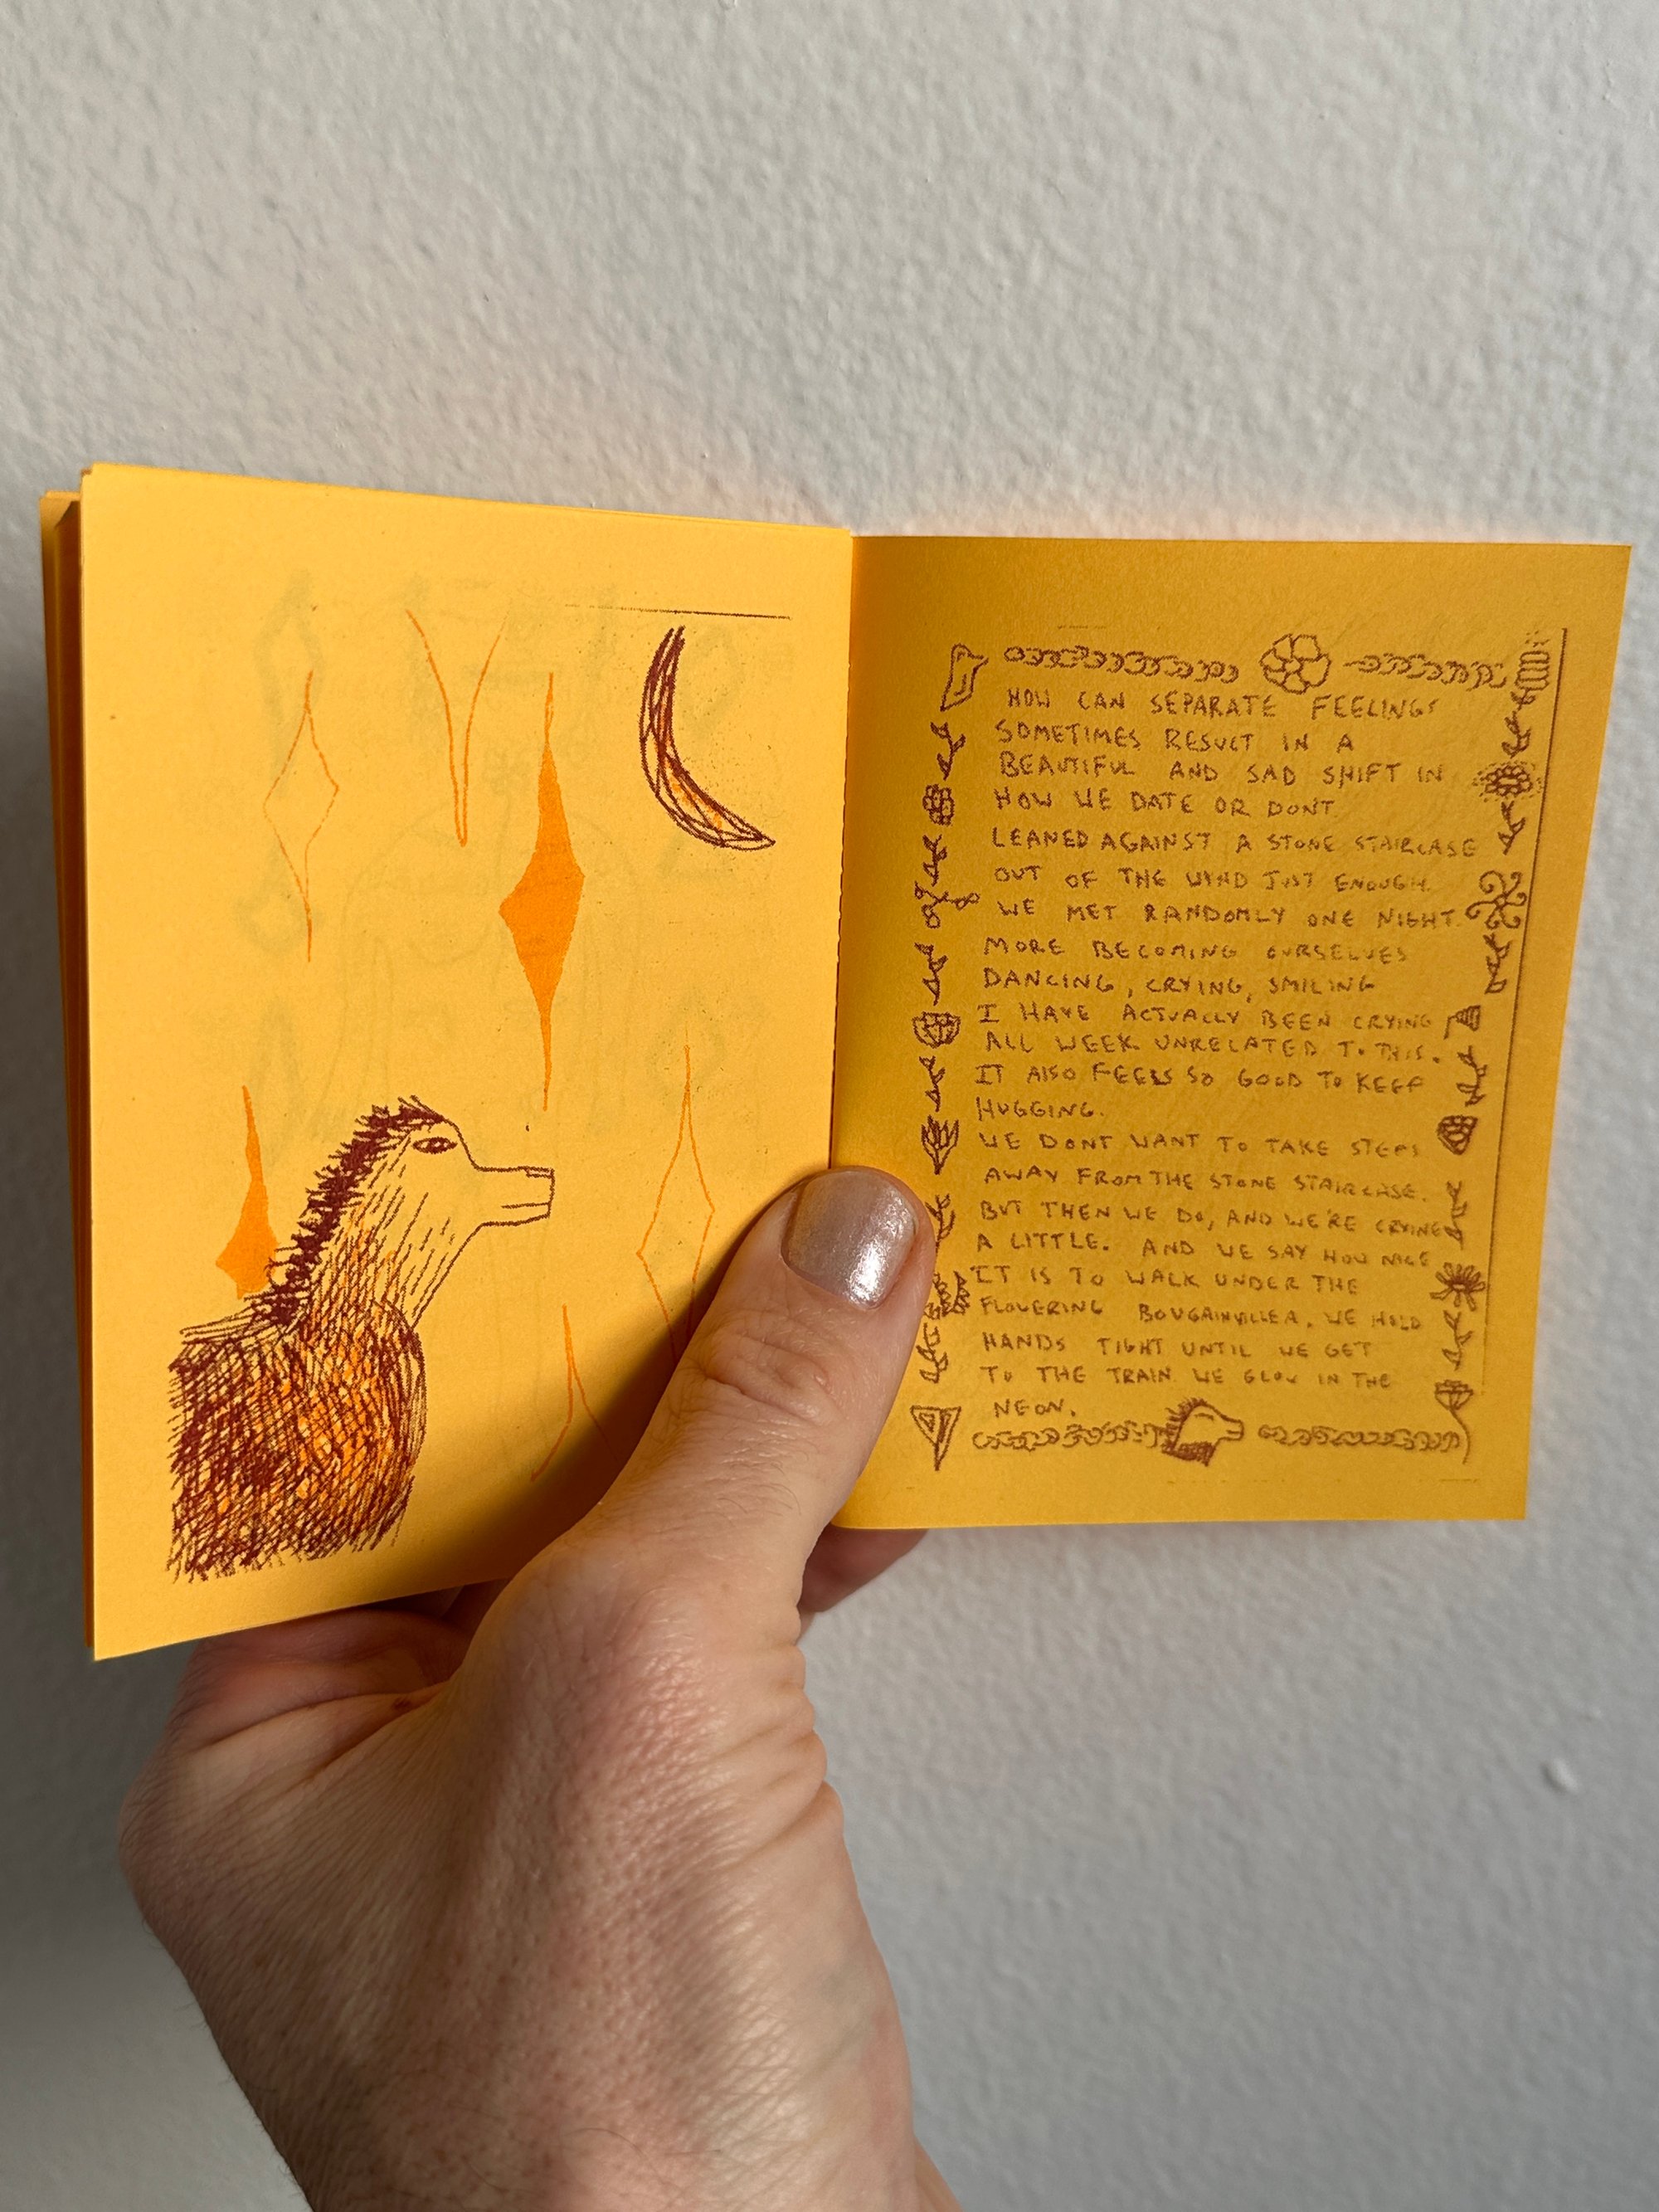 HOW CAN SEPARATE FEELINGS
SOMETIMES RESULT IN A
BEAUTIFUL AND SAD SHIFT IN
HOW WE DATE OR DONT
LEANED AGAINST A STONE STAIRCASE
OUT OF THE WIND JUST ENOUGH.
WE MET RANDOMLY ONE NIGHT
MORE BECOMING OURSELVES
DANCING, CRYING, SMILING
I HAVE ACTUALLY BEEN CRYING
ALL WEEK UNRELATED TO THIS.
IT ALSO FEELS SO GOOD TO KEEP
HUGGING.
WE DONT WANT TO TAKE STEPS
AWAY FROM THE STONE STAIRCASE.
BUT THEN WE DO, AND WE'RE CRYING
A LITTLE. AND WE SAY HOW NICE
IT IS TO WALK UNDER THE
FLOWERING BOUGAINVILLEA. WE HOLD
HANDS TIGHT UNTIL WE GET
TO THE TRAIN WE GLOW IN THE
NEON.